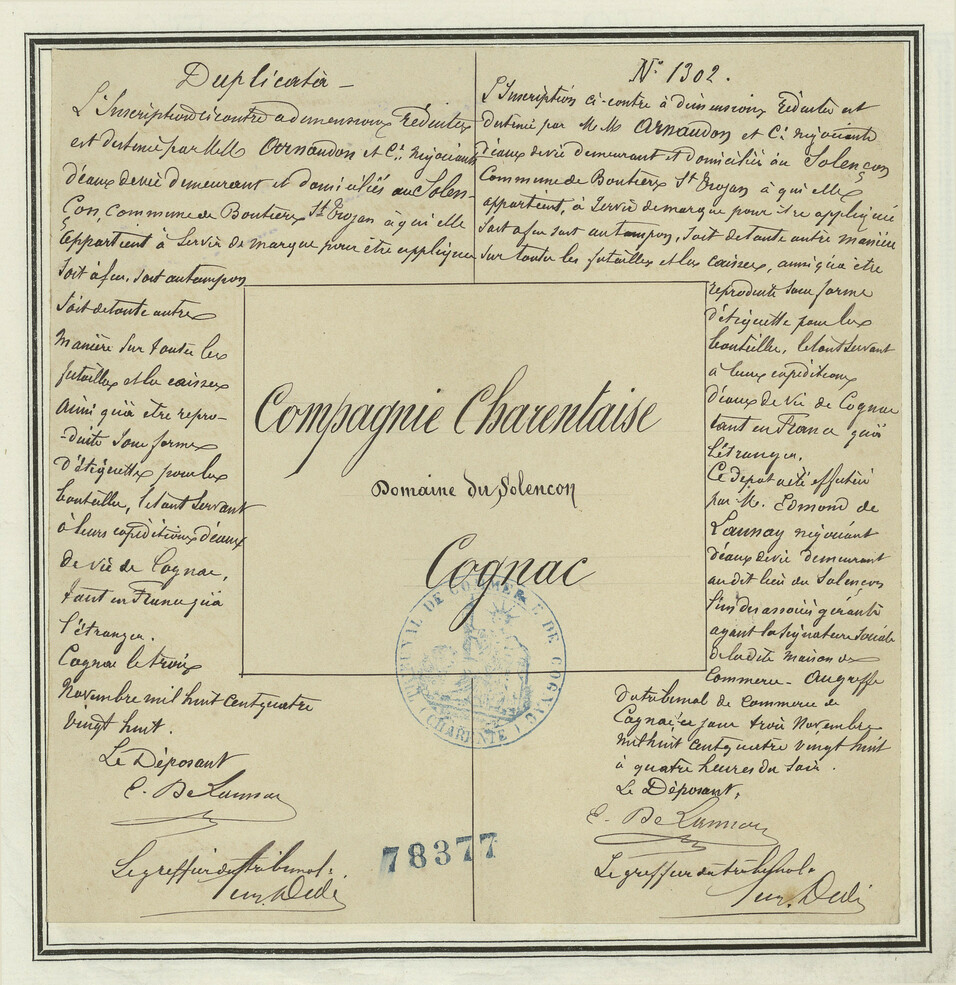 Duplicata -
L'Inscription ci contre a dimensions Réduites
est destinée par M.M. Arnaudon et Cie. Négociants
d'eaux de vie demeurant et domiciliés au Solen-
çon, commune de Boutiers St Trojan à qui elle
appartient à servir de marque pour être appliquée
soit à feu, soit au tampon
soit de toute autre
manière sur toutes les
futailles et les caisses
ainsi qu'à être repro-
-duite sous forme
d'étiquettes pour les
bouteilles, le tout servant
à leurs expéditions d'eaux
de vie de Cognac,
tant en France qu'à
l'étranger.
Cognac le trois
Novembre mil huit cent quatre
vingt huit.
Le Déposant
E. De Launay
Le greffier du tribunal.
No. 1302.
L'Inscription ci-contre à dimensions Réduites est
destinée par M M. Arnaudon et Cie négociants
d'eaux de vie demeurant et domiciliés au Solençon
Commune de Boutiers St Trojan à qui elle
appartient, à servir de marque pour être appliquée
soit a feu soit au tampon, soit de toute autre manière
sur toutes les futailles et les caisses, ainsi qu'à être
reproduite sous forme
d'étiquette pour les
bouteilles, le tout servant
à leurs expéditions
d'eaux de vie de Cognac
tant en France qu'à
l'étranger.
Ce dépot a été effectué
par M. Edmond de
Launay négociant
d'eaux de vie demeurant
au dit lieu du Solençon
l'un des associés gérants
ayant la signature sociale
de la dite maison de
Commerce - Au greffe
du tribunal de Commerce de
Cognac, ce jour trois Novembre
mil huit cent quatre vingt huit
à quatre heures du soir.
Le Déposant,
E. De Launay
Le greffier du tribunal.
Compagnie Charentaise
Domaine du Solençon
Cognac
TRIBUNAL DE COMMERCE DE COGNAC
(CHARENTE)
78377